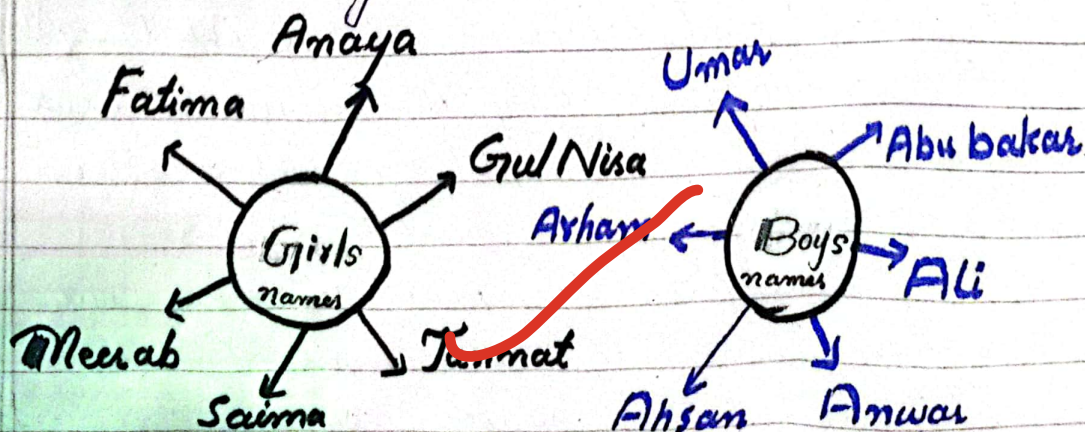 Anaya
Fatima
Gul Nisa
Girls
names
Meerab
Saima
Umar
Abu bakar
Arham
Boys
names
Ali
Ahsan
Anwar